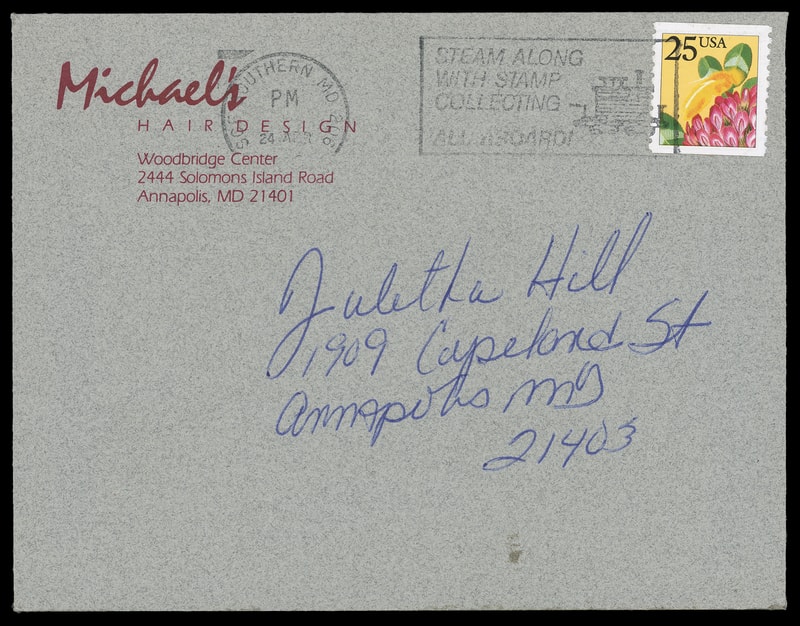 Michael's
HAIR DESIGN
Woodbridge Center
2444 Solomons Island Road
Annapolis, MD 21401
SOUTHERN MD
PM
24
STEAM ALONG
WITH STAMP
COLLECTING
ALL ABOARD!
25 USA
Juletha Hill
1909 Copeland St
Annapolis MD
21403